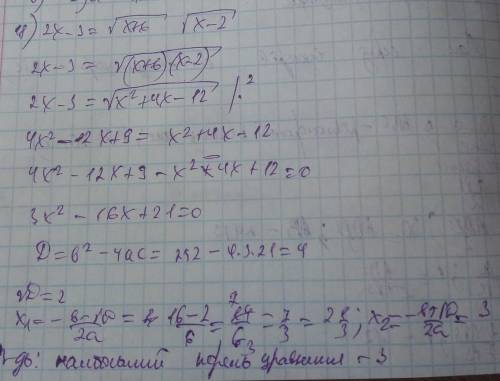 2x-3 = √x+6 √x-2
2x-3 = √(x+6)(x-2)
2x-3 = √x²+4x-12 /·²
4x²-12x+9 = x²+4x-12
4x²-12x+9-x²-4x+12=0
3x²-16x+21=0
D=b²-4ac= 252-4·3·21=4
√D=2
x₁=-b-√D/2a = 16-2/6 = 14/6 = 7/3 = 2 3; x₂= -b+√D/2a = 3
наибольший корень уравнения - 3